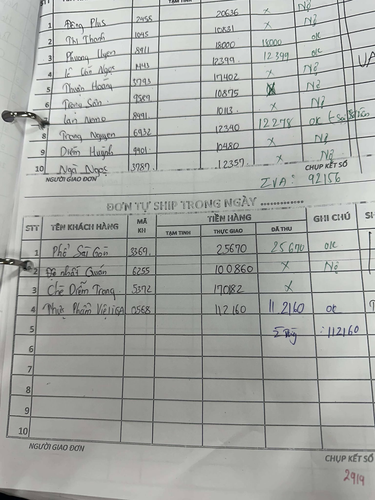 STT TẠM TÍNH
1 2455 20636 x Nợ
2 Thi Thanh 1045 10831 x Nợ
3 Phương Uyên 8911 18000 18000 ok
4 12399 12399 ok
5 Thuận Hoàng 3793 17402 x Nợ
6 9587 10875 x Nợ
7 8991 10113 x Nợ
8 Trọng Nguyen 6932 12340 12278 ok
9 Diễm Huỳnh 9901 10480 x Nợ
10 Ngà Ngọc 3787 12357 x Nợ
NGƯỜI GIAO ĐƠN CHỤP KẾT SỐ
92156
ĐƠN TỰ SHIP TRONG NGÀY .............
STT TÊN KHÁCH HÀNG MÃ KH TIỀN HÀNG GHI CHÚ
TẠM TINH THỰC GIAO ĐÃ THU
1 Phở Sài Gòn 3369. 25670 25670 ok
2 Quán 6255 100860 x Nợ
3 Chè Diễm Trang 5372 17082 x
4 Thực Phẩm 0568 112160 112160 ok
5 : 112160
6
7
8
9
10
NGƯỜI GIAO ĐƠN CHỤP KẾT SỐ
29/9